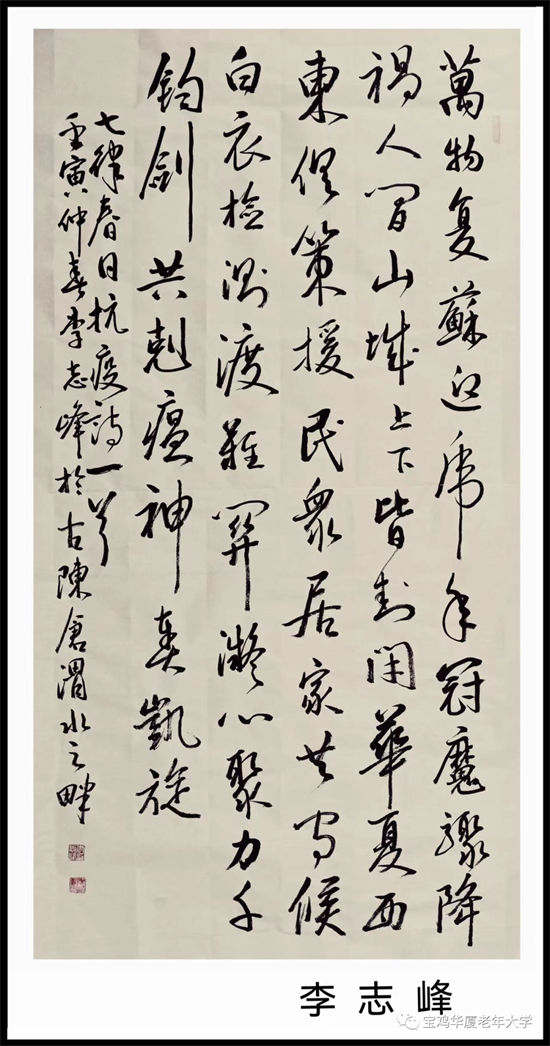 萬物复蘇迎虎年冠魔驟降
禍人间山城上下皆封闭華夏西
東俱策援民眾居家共守候
白衣检测渡難関凝心聚力千
鈞劍共剋瘟神奏凱旋
七律春日抗疫詩一首
壬寅仲春李志峰於古陳倉渭水之畔
李志峰
宝鸡华厦老年大学